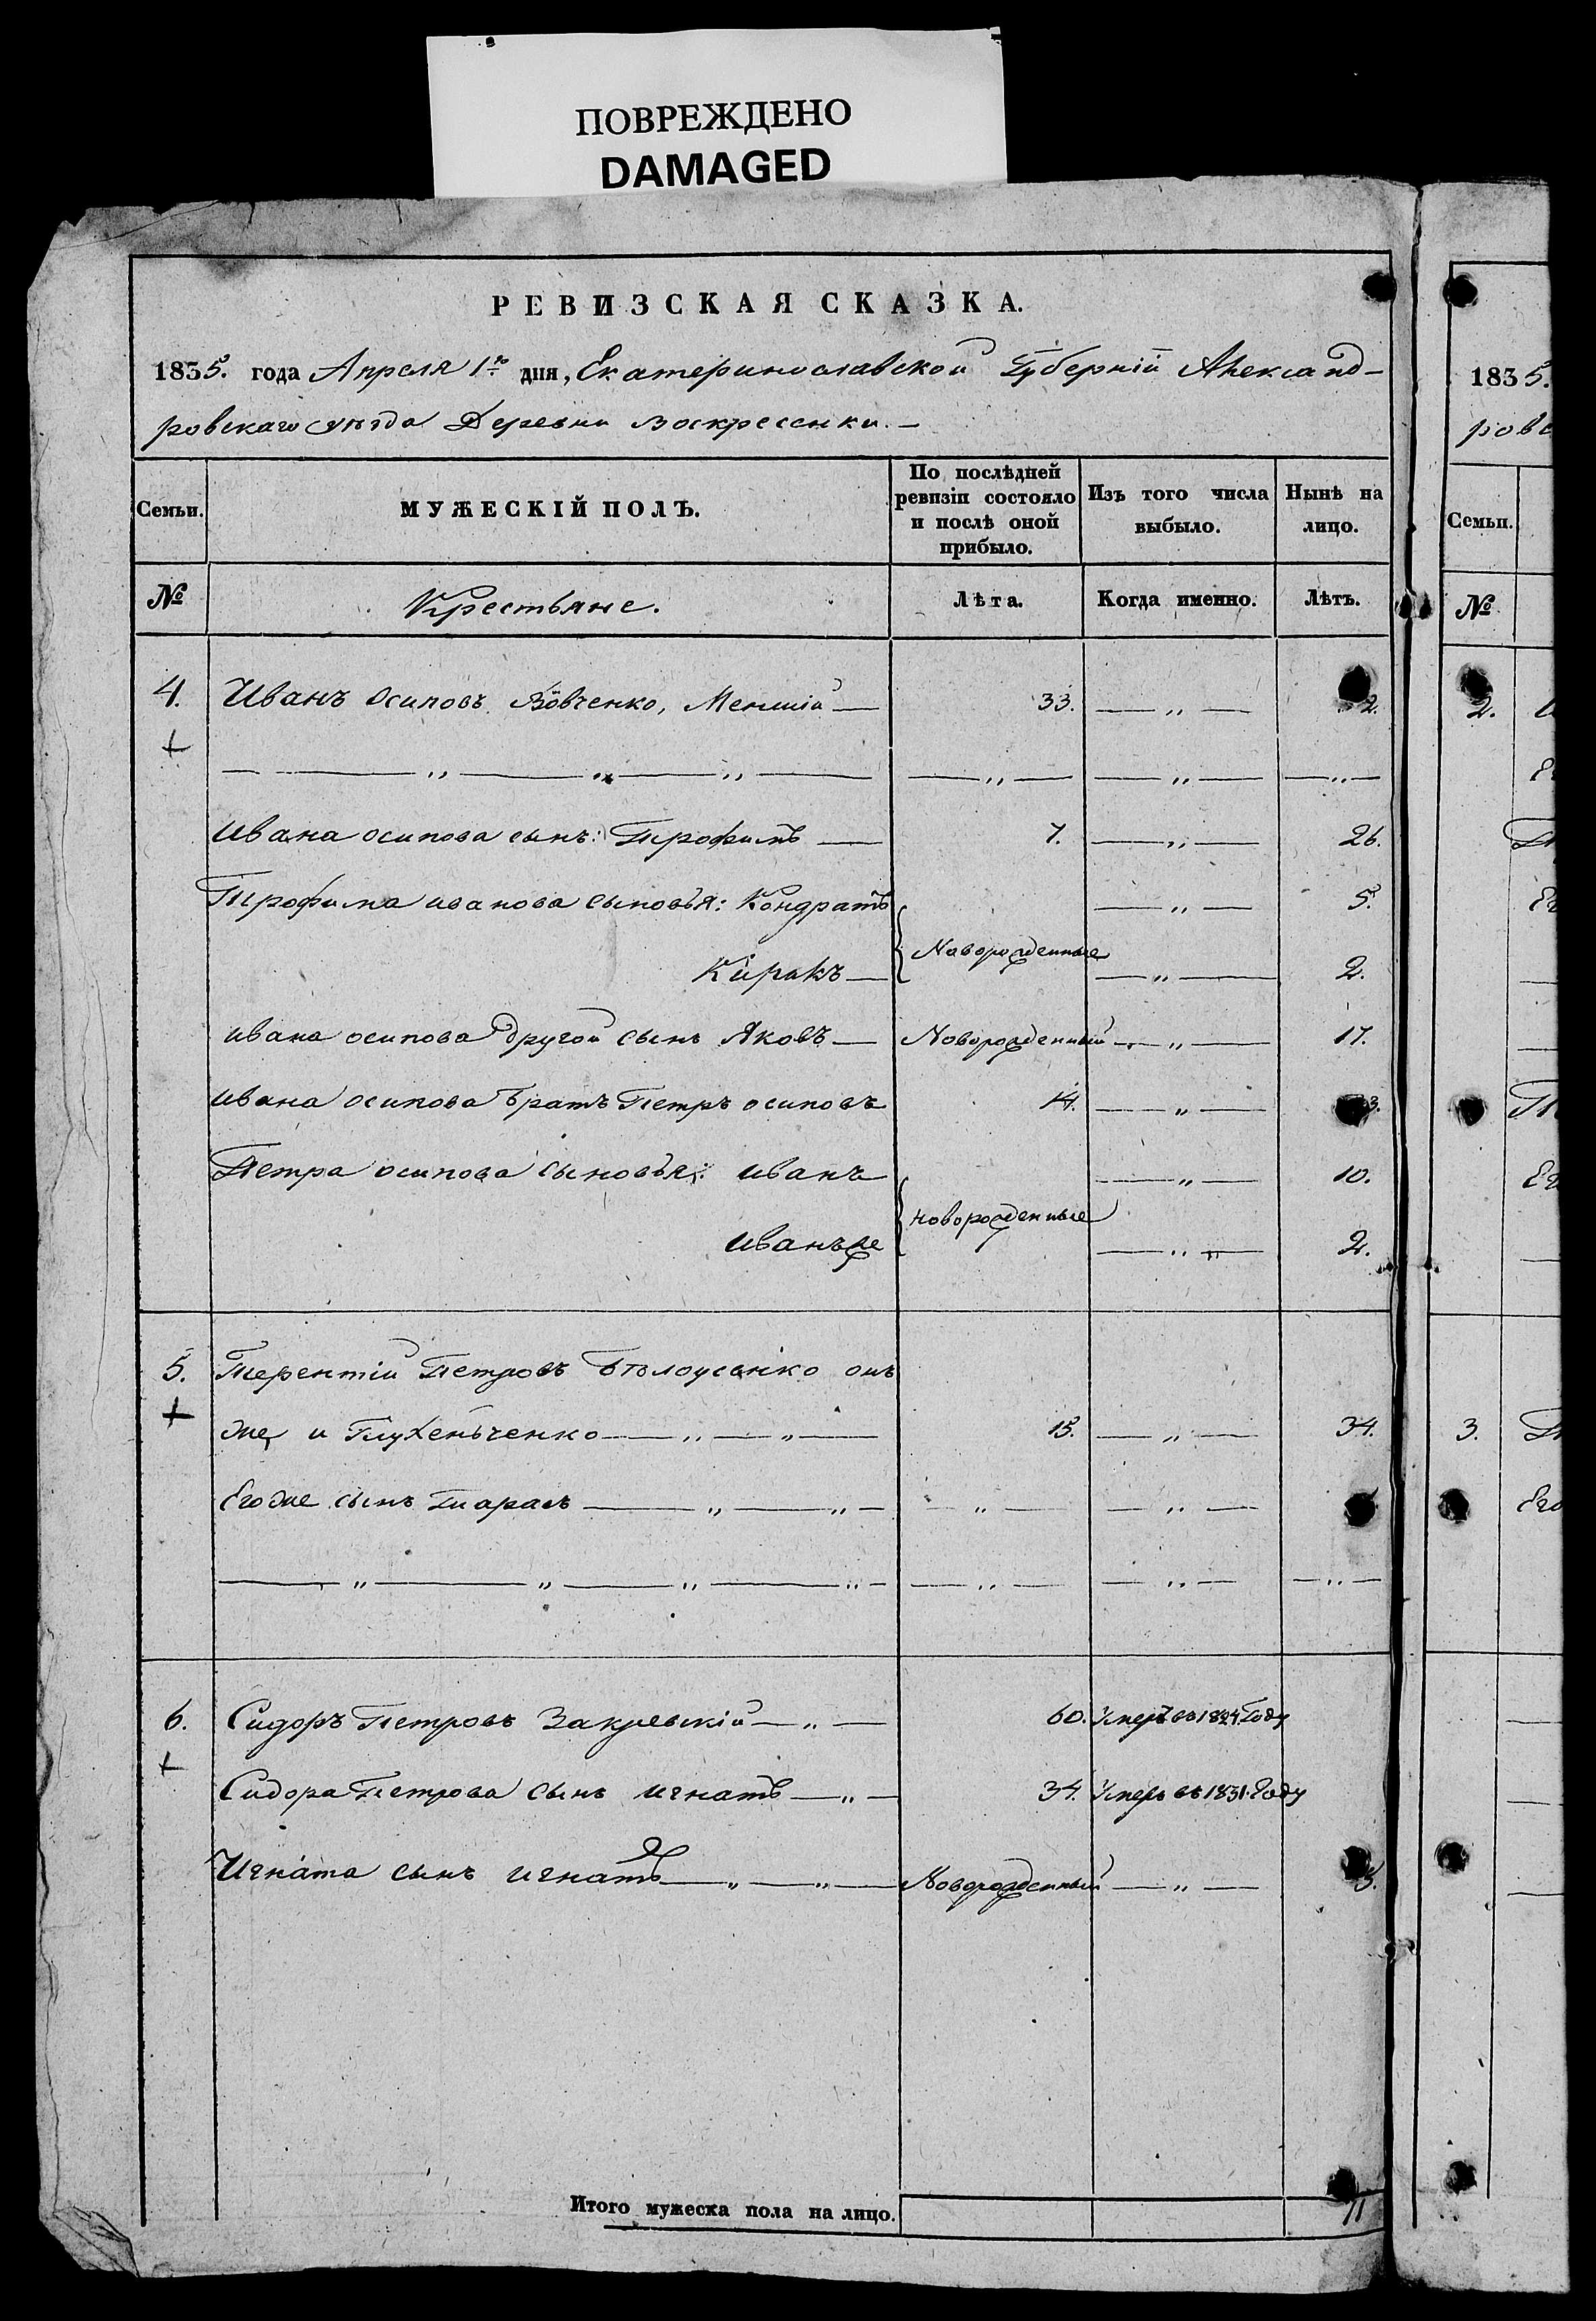 ПОВРЕЖДЕНО
DAMAGED
РЕВИЗСКАЯ СКАЗКА.
1835. года Апреля 1го дня, Екатеринославской Губерніи Александ-
ровскаго уѣзда Деревни Воскресенки.
Семьи. МУЖЕСКІЙ ПОЛЪ. По послѣдней ревизіи состояло и послѣ оной прибыло. Изъ того числа выбыло. Нынѣ на лицо.
№ Крестьяне. Лѣта. Когда именно. Лѣтъ.
4. Иванъ Осиповъ Вовченко, Меншій 33. 2.
Ивана осипова сынъ: Трофимъ 7. 26.
Трофима иванова сыновья: Кондратъ 5.
Новорожденные
Кирикъ 2.
ивана осипова другой сынъ Яковъ Новорожденный 17.
ивана осипова братъ Петръ осиповъ 14. 3.
Петра осипова сыновья: иванъ 10.
новорожденные
иванъ же 2.
5. Терентій Петровъ Бѣлоусенко онъ
же и Глухеньченко 15. 34.
Его же сынъ Тарасъ
6. Сидоръ Петровъ Закревскій 60. Умеръ въ 1824. Году
Сидора Петрова сынъ игнатъ 34. Умеръ въ 1831. Году
Игната сынъ игнатъ Новорожденный 5.
Итого мужеска пола на лицо. 11
1835.
ровс
Семьи.
№
2.
3.
Его